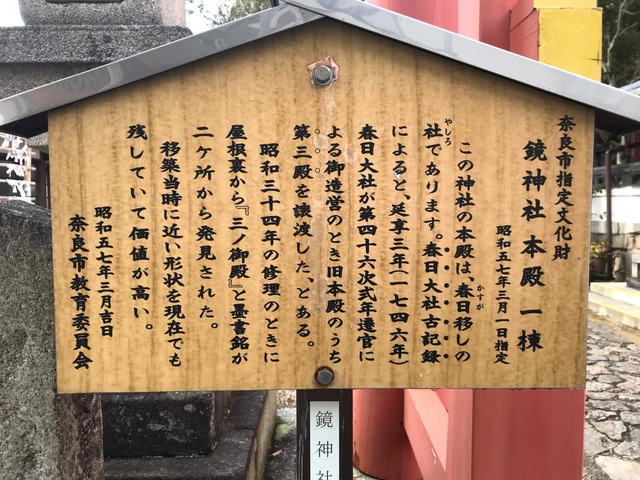 奈良市指定文化財
鏡神社本殿 一棟
昭和五七年三月一日指定
この神社の本殿は、春日移しの
かすが
社であります。春日大社古記録
やしろ
によると、延享三年(一七四六年)
春日大社が第四十六次式年遷宮に
よる御造営のとき旧本殿のうち
第三殿を譲渡した、とある。
昭和三十四年の修理のときに
屋根裏から『三ノ御殿』と墨書銘が
二ケ所から発見された。
移築当時に近い形状を現在でも
残していて価値が高い。
昭和五七年三月吉日
奈良市教育委員会
鏡神社